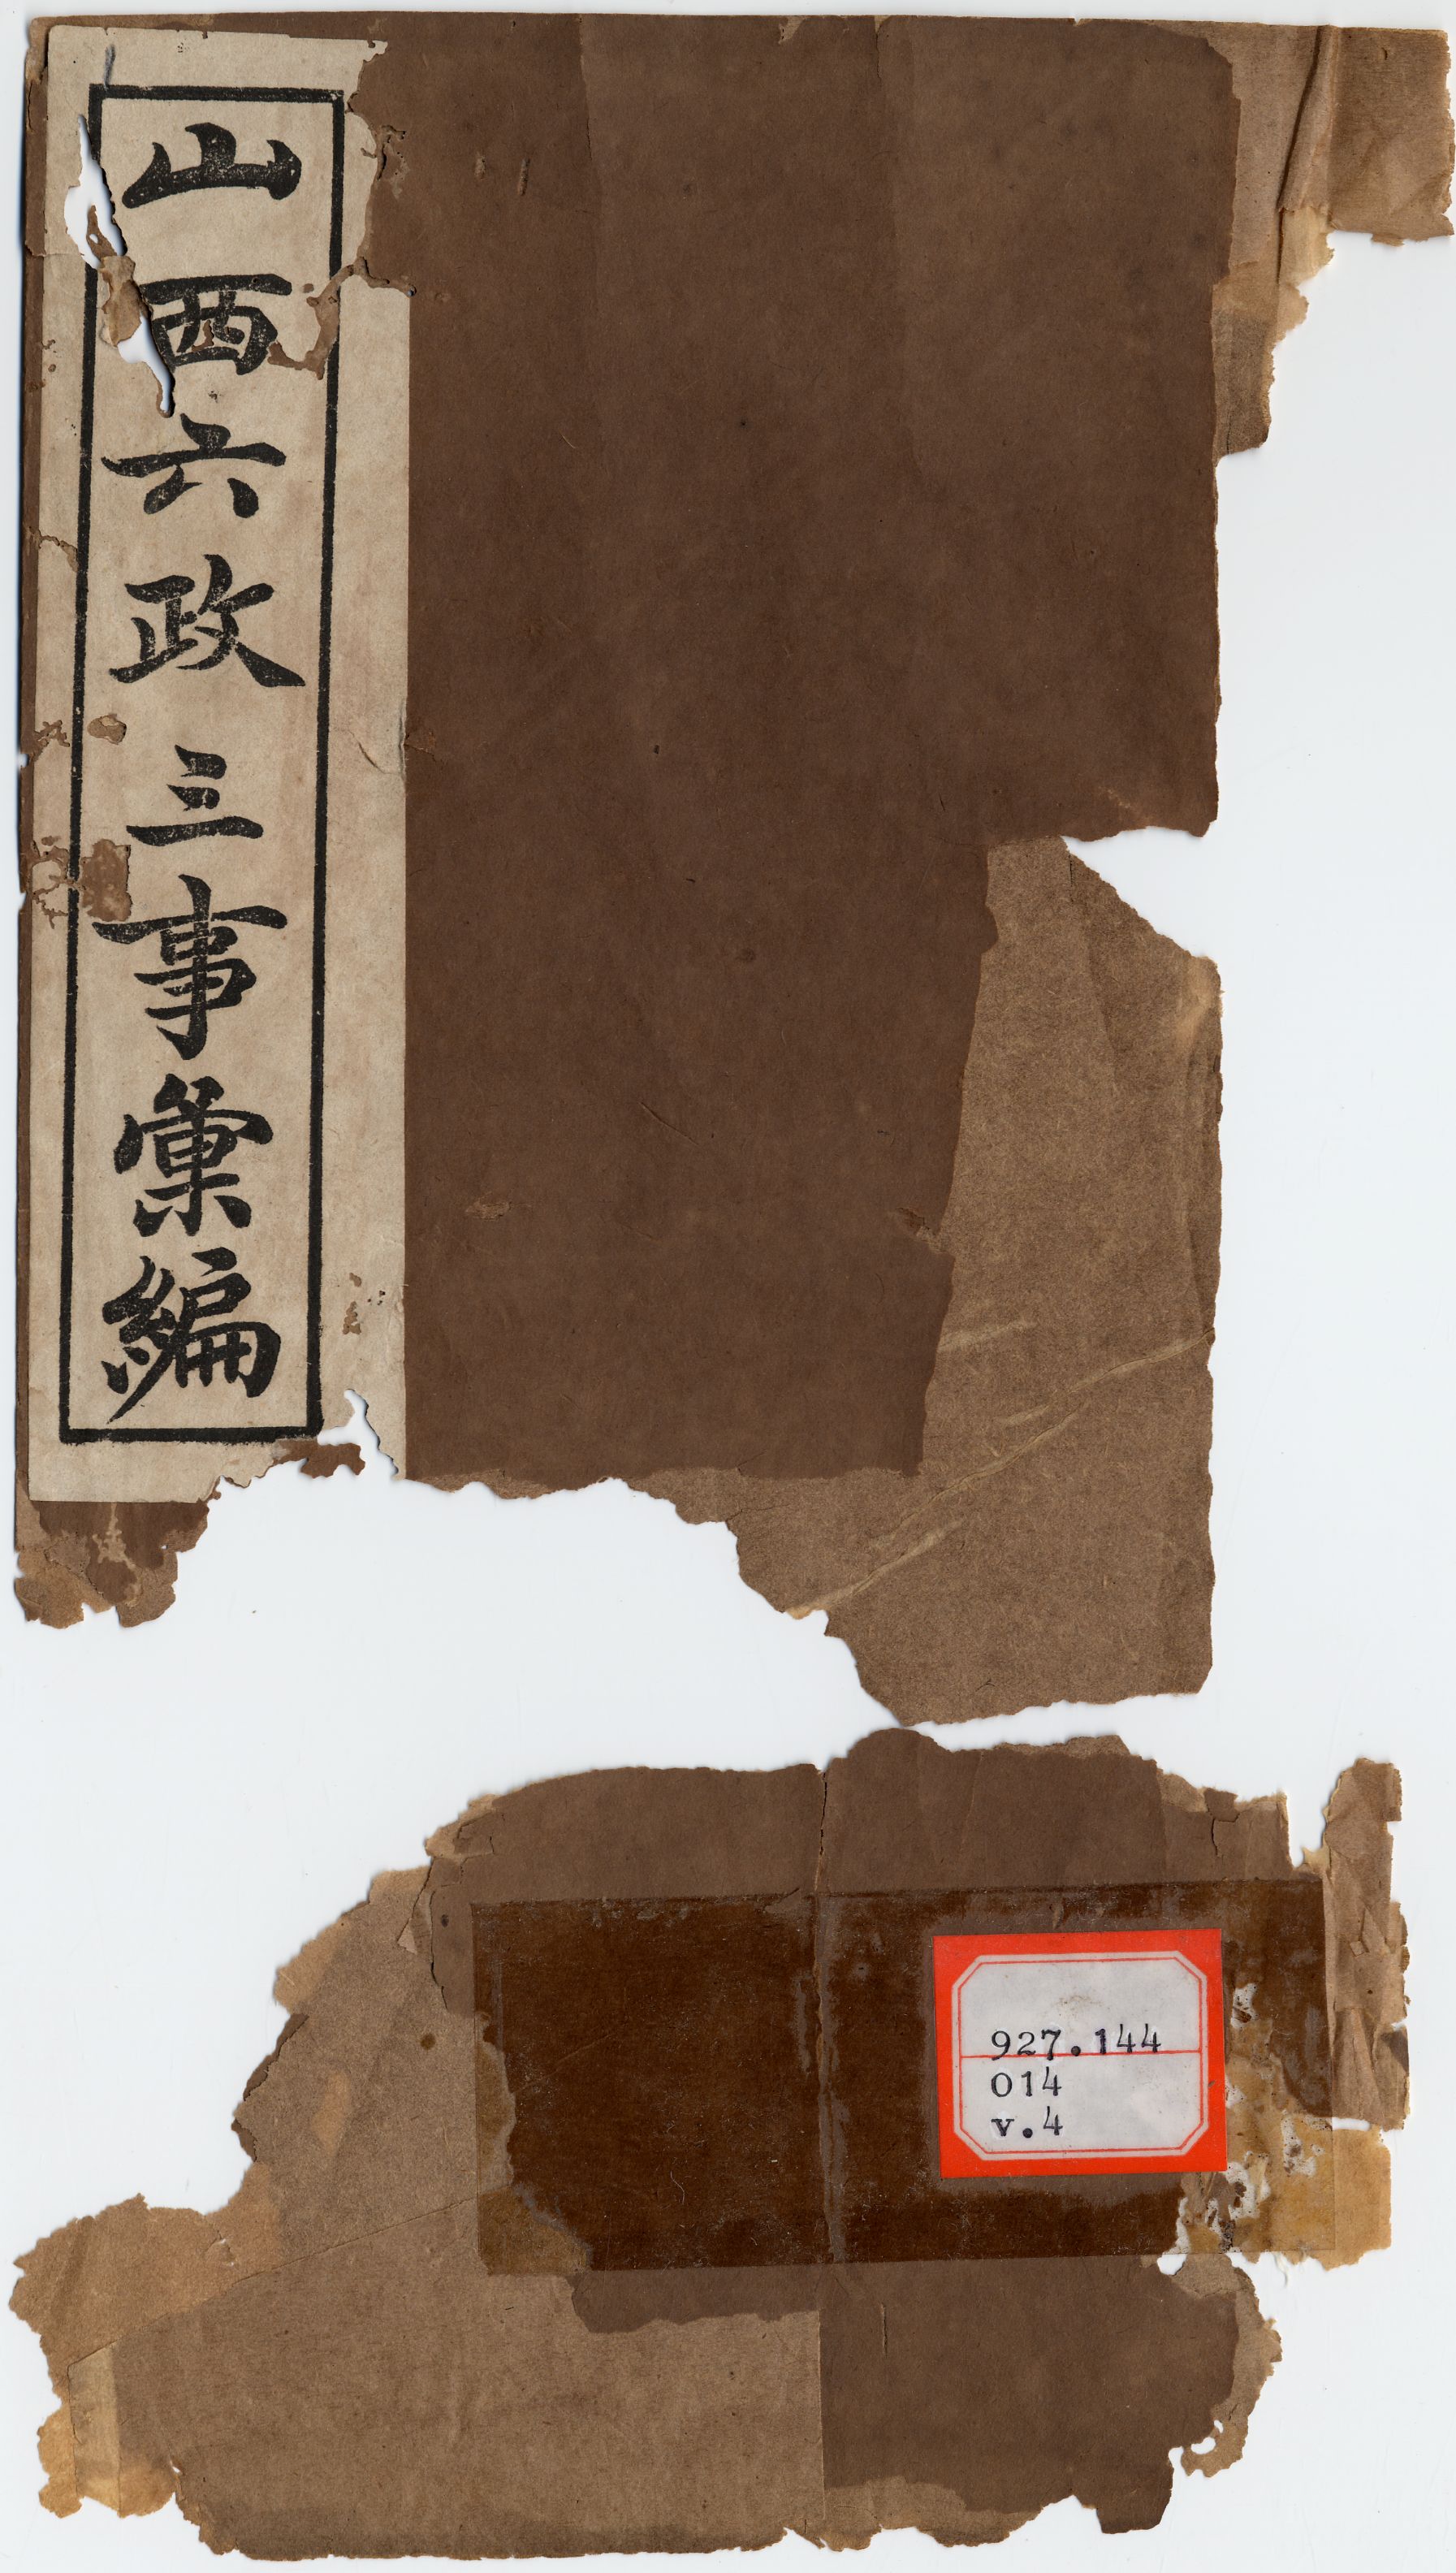 山西六政三事彙編
927.144
014
v.4